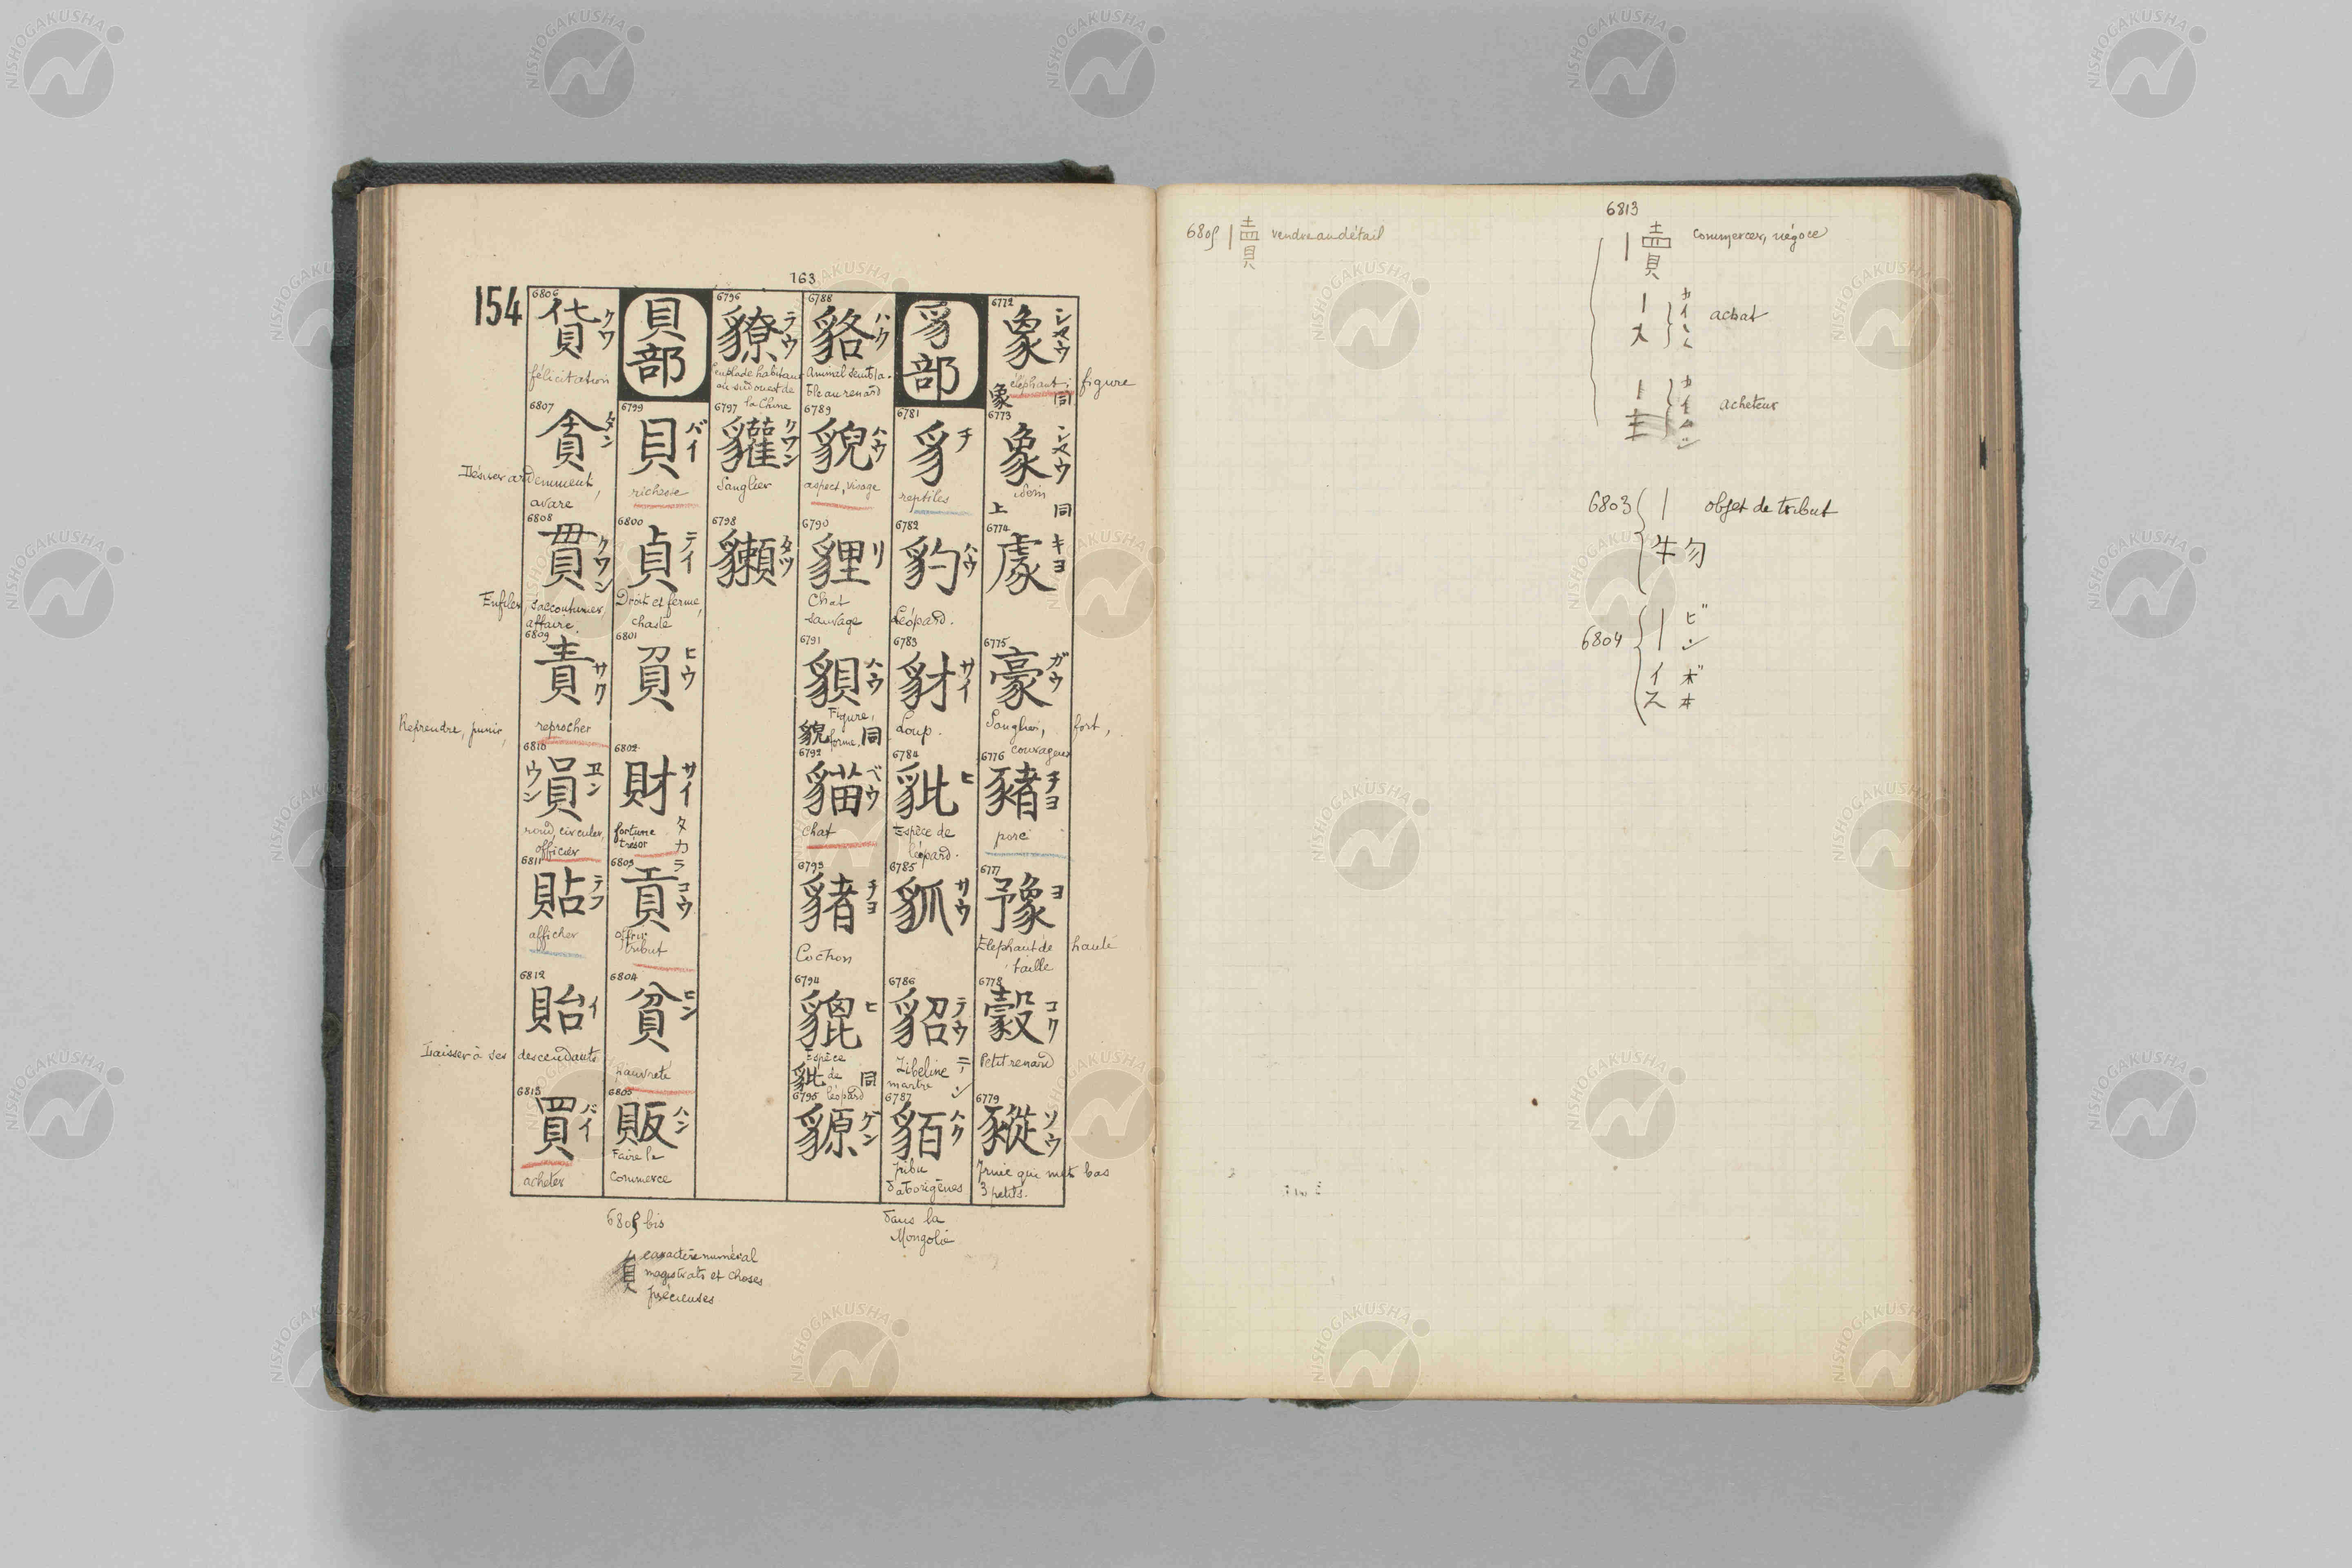 163
154
6772
象
シヤウ
éléphant; figure
象 同
6773
象
シヤウ
上 同
6774
豦
キヨ
6775
豪
ガウ
Sanglier, fort,
courageux
6776
豬
チヨ
porc
6777
豫
ヨ
Elephant de haute
taille
6778
コク
Petit renard
6779
豵
ソウ
Truie qui met bas
3 petits.
豸部
6781
豸
チ
reptiles
6782
豹
ハウ
Léopard.
6783
豺
サイ
Loup.
6784
豼
ヒ
Espèce de
léopard.
6785
サウ
6786
貂
テウ
Zibeline
martre
テン
6787
貊
ハク
Tribu
d'aborigènes
dans la
Mongolie
6788
貉
ハク
Animal sembla-
ble au renard
6789
貌
ハウ
aspect, visage
6790
貍
リ
Chat
sauvage
6791
ハウ
Figure,
forme,
貌 同
6792
貓
ベウ
chat
6793
チヨ
Cochon
6794
貔
ヒ
Espèce
de
léopard
豼 同
6795
豲
ゲン
6796
獠
ラウ
Peuplade habitant
au sud ouest de
la Chine
6797
貛
クワン
Sanglier
6798
獺
タツ
貝部
6799
貝
バイ
richesse
6800
貞
テイ
Droit et ferme,
chaste
6801
負
ヒウ
6802
財
サイ
タカラ
fortune
trésor
6803
貢
コウ
offrir
tribut
6804
貧
ヒン
pauvreté
6805
販
ハン
Faire le
commerce
6805 bis
員
caractère numéral
magistrats et choses
précieuses
6806
貨
クワ
félicitation
6807
貪
タン
Désirer ardemment,
avare
6808
貫
クワン
Enfiler, s'accoutumer,
affaire.
6809
責
サク
Reprendre, punir,
reprocher
6810
員
エン
ウン
rond, circuler,
officier
6811
貼
テフ
afficher
6812
貽
イ
Laisser à ses descendants
6813
買
バイ
acheter
6805 | 賣 vendre au détail
6813
| 賣 commercer, négoce
achat
acheteur
6803 | objet de tribut
牛勿
6804 | ビン